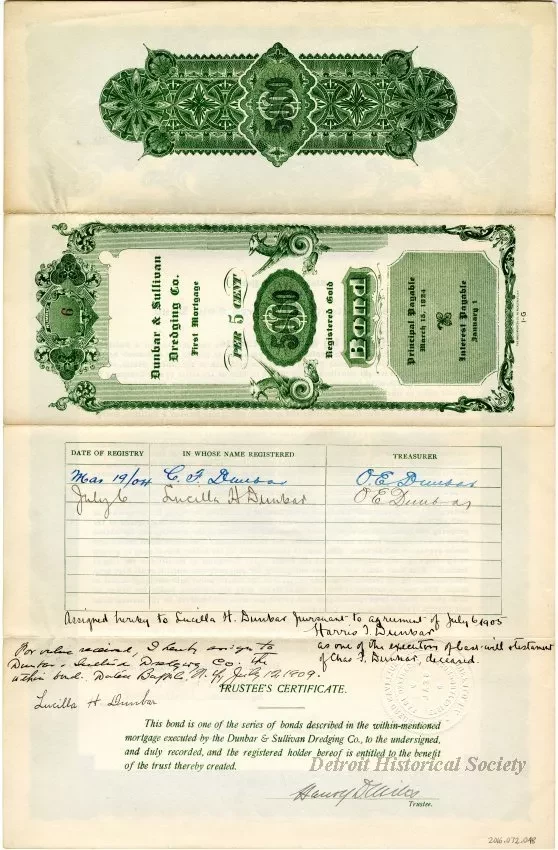 5000
No.
6
Dunbar & Sullivan
Dredging Co.
First Mortgage
5 PER CENT
5000
Registered Gold
Bond
Principal Payable
March 15, 1924
Interest Payable
January 1
DATE OF REGISTRY IN WHOSE NAME REGISTERED TREASURER
Mar 19/04 C. F. Dunbar O. E. Dunbar
July 6 Lucilla H Dunbar O E Dunbar
Assigned hereby to Lucilla H. Dunbar pursuant to agreement of July 6 1905
Harris T. Dunbar
as one of the executors of last will & testament
of Chas F. Dunbar, deceased.
For value received, I hereby assign to
Dunbar & Sullivan Dredging Co. the
within bond. Dated Buffalo, N.Y., July 12, 1909.
Lucilla H Dunbar
TRUSTEE'S CERTIFICATE.
This bond is one of the series of bonds described in the within-mentioned
mortgage executed by the Dunbar & Sullivan Dredging Co., to the undersigned,
and duly recorded, and the registered holder hereof is entitled to the benefit
of the trust thereby created.
Detroit Historical Society
Trustee.
2016.072.048